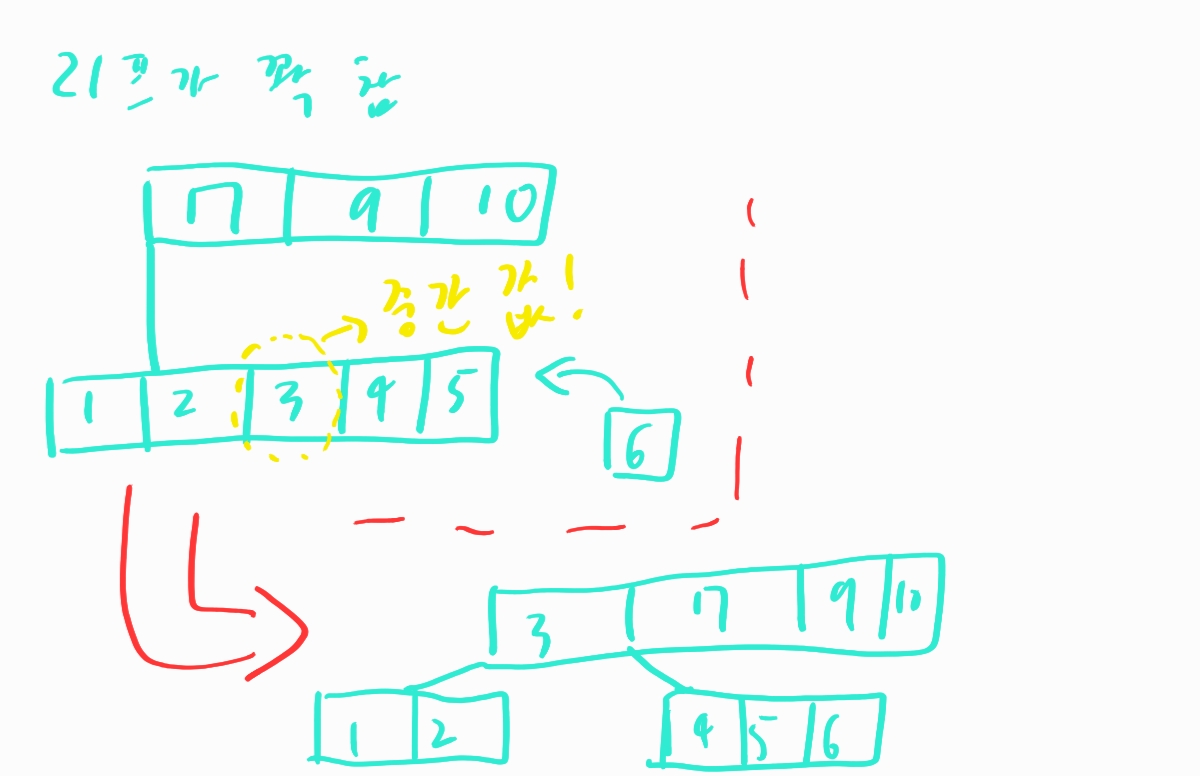 리프가 꽉 참
7 9 10
중간 값!
1 2 3 4 5
6
3 7 9 10
1 2
4 5 6